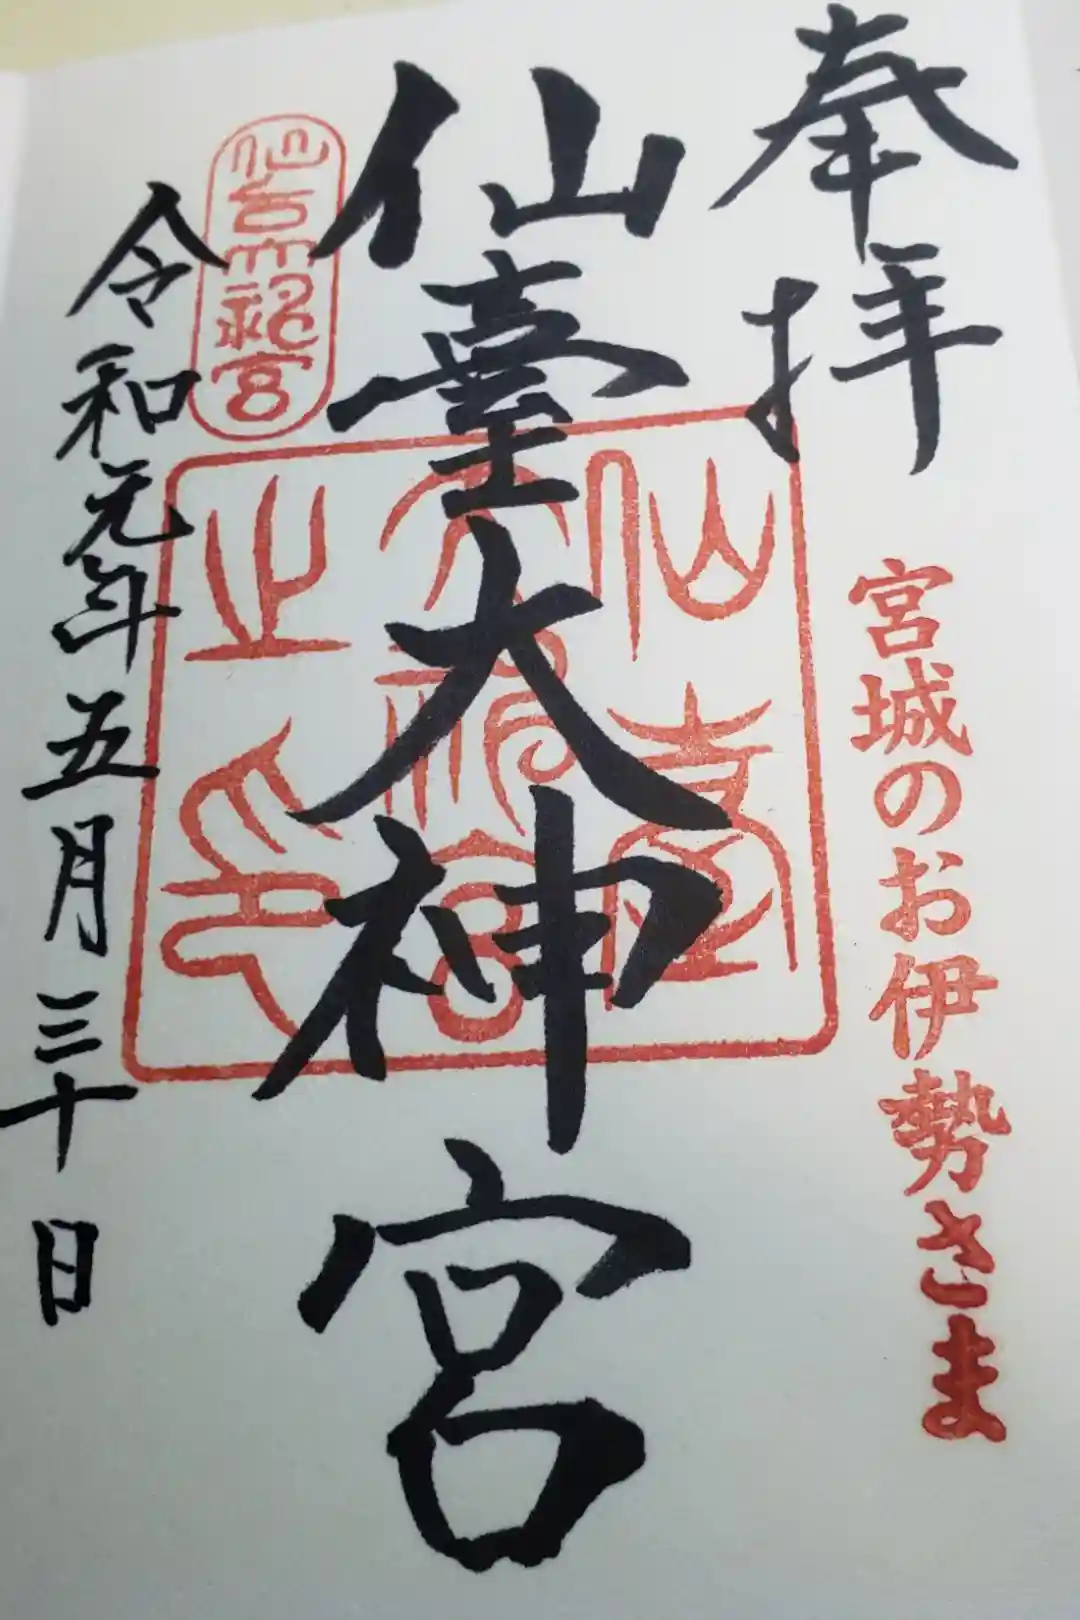 奉拝
宮城のお伊勢さま
仙臺大神宮
仙臺大神宮之印
仙台大神宮
令和元年五月三十日